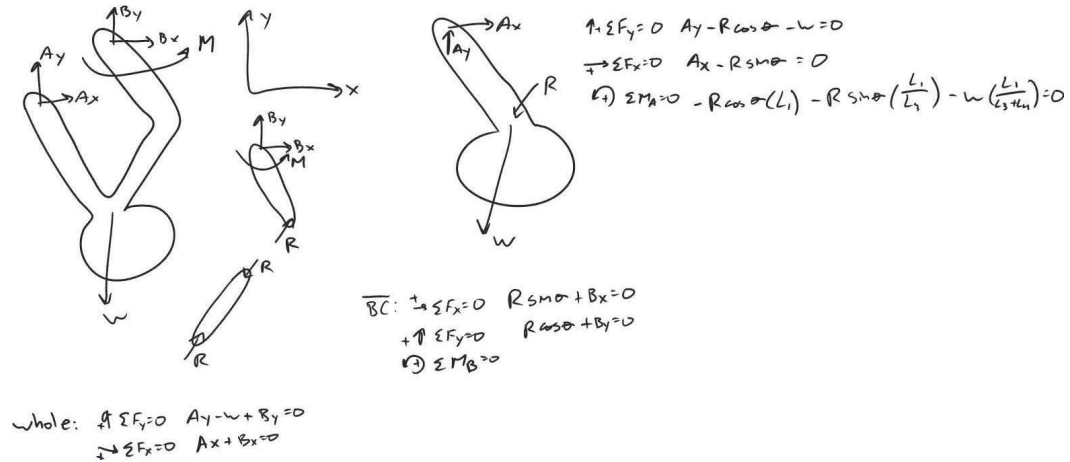 By
Bx
M
Ay
Ax
w
y
x
By
Bx
M
R
R
R
Ax
Ay
R
w
↑+ ΣFy=0 Ay-Rcosθ-w=0
→+ ΣFx=0 Ax-Rsinθ=0
↺+ ΣMA=0 -Rcosθ(L1)-Rsinθ(L1/L3)-w(L1/L3+L4)=0
BC: →+ ΣFx=0 Rsinθ+Bx=0
+↑ ΣFy=0 Rcosθ+By=0
↺+ ΣMB=0
whole: +↑ ΣFy=0 Ay-w+By=0
→+ ΣFx=0 Ax+Bx=0